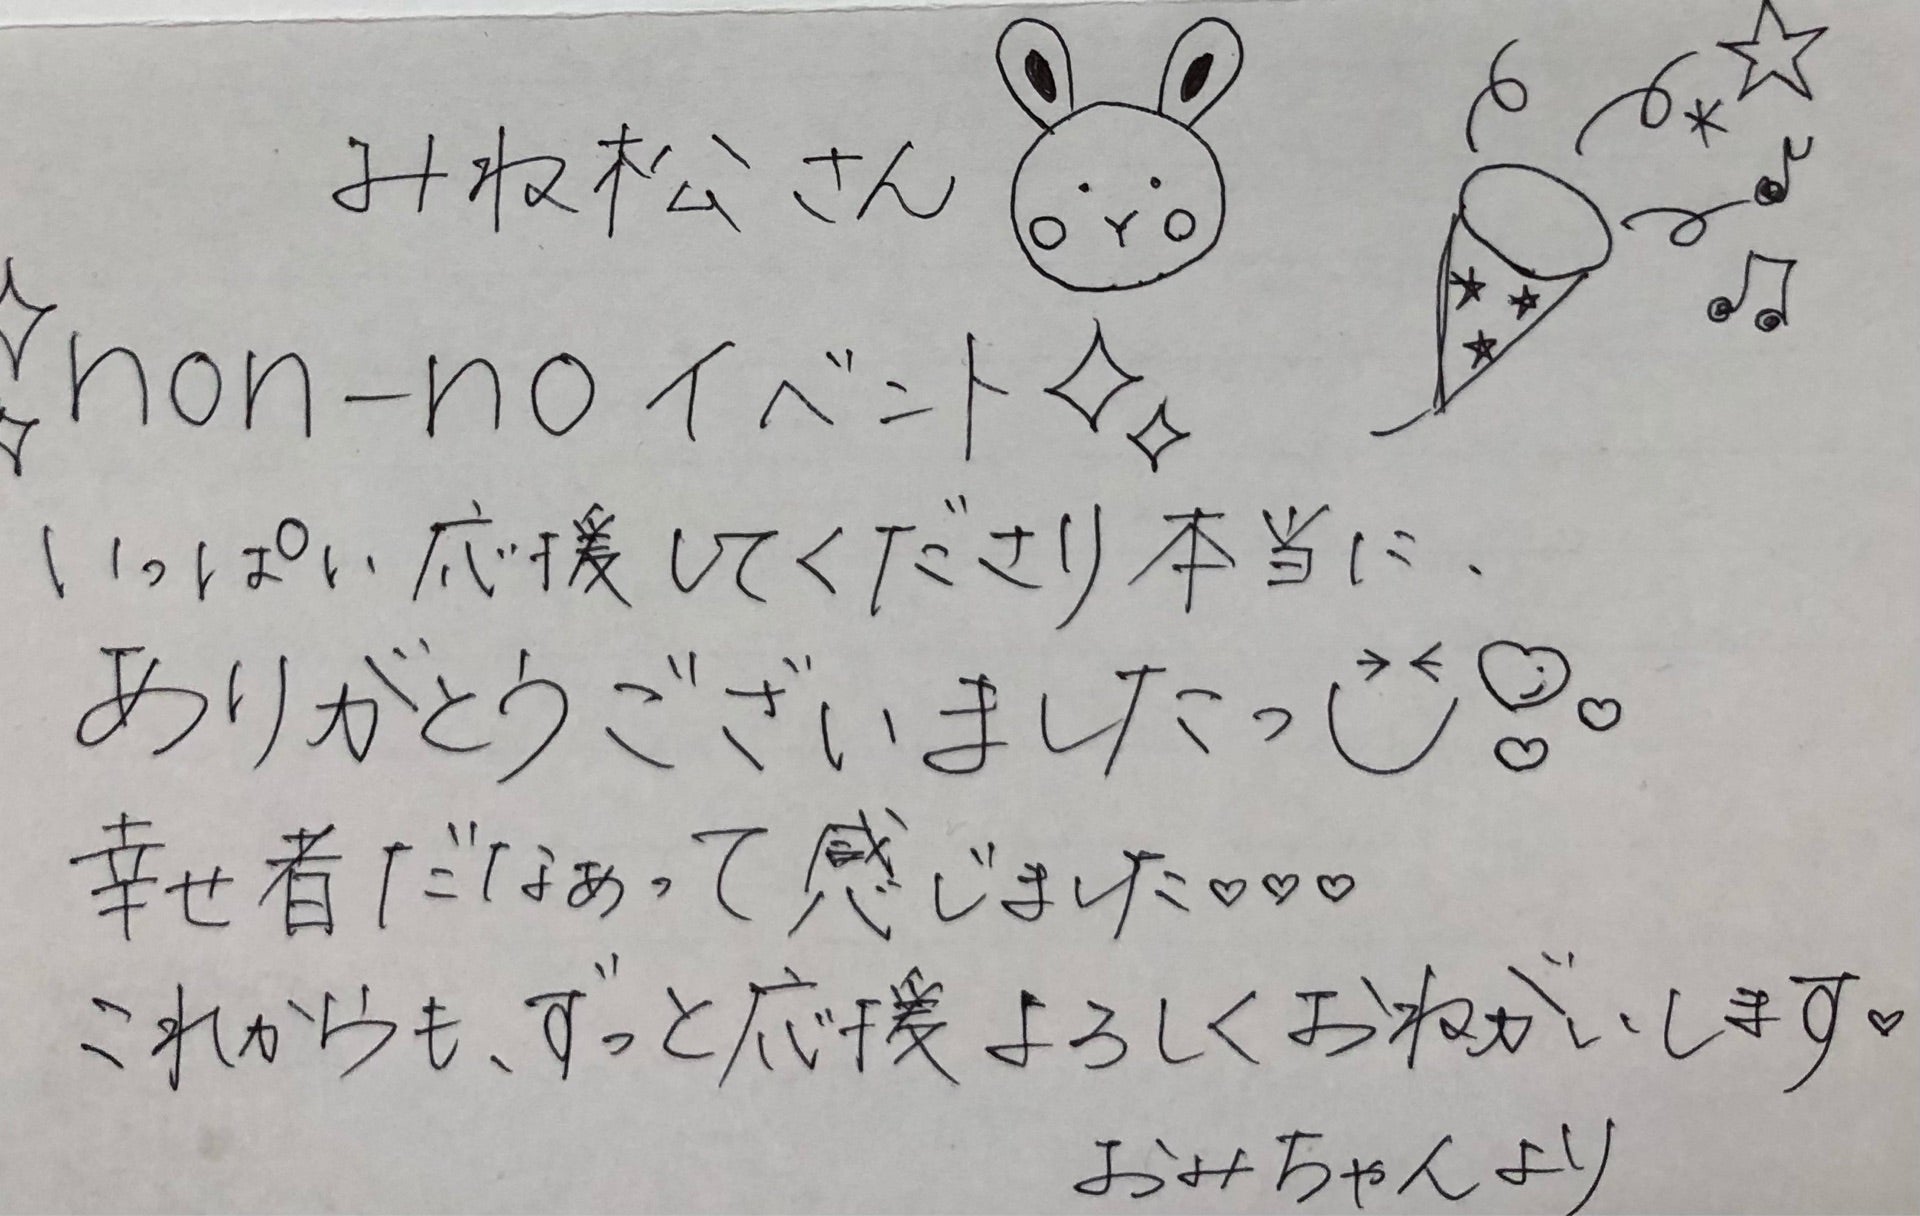 みね松さん
non-noイベント
いっぱい応援してくださり本当に、
ありがとうございましたっ
幸せ者だなぁって感じました♡♡♡
これからも、ずっと応援よろしくおねがいします♡
おみちゃんより